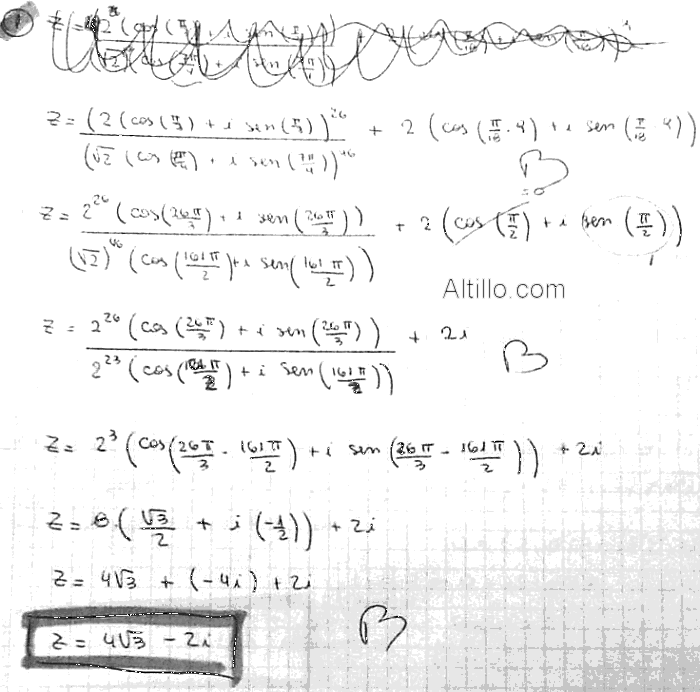 1
Z = (2 (cos (π/3) + i sen (π/3)))^26 / (√2 (cos (7π/4) + i sen (7π/4)))^46 + 2 (cos (π/18 · 9) + i sen (π/18 · 9))
Z = 2^26 (cos (26π/3) + i sen (26π/3)) / (√2)^46 (cos (161π/2) + i sen (161π/2)) + 2 (cos (π/2) + i sen (π/2))
=0
1
Altillo.com
Z = 2^26 (cos (26π/3) + i sen (26π/3)) / 2^23 (cos (161π/2) + i sen (161π/2)) + 2i
B
Z = 2^3 (cos (26π/3 - 161π/2) + i sen (26π/3 - 161π/2)) + 2i
Z = 8 (√3/2 + i (-1/2)) + 2i
Z = 4√3 + (-4i) + 2i
Z = 4√3 - 2i
B